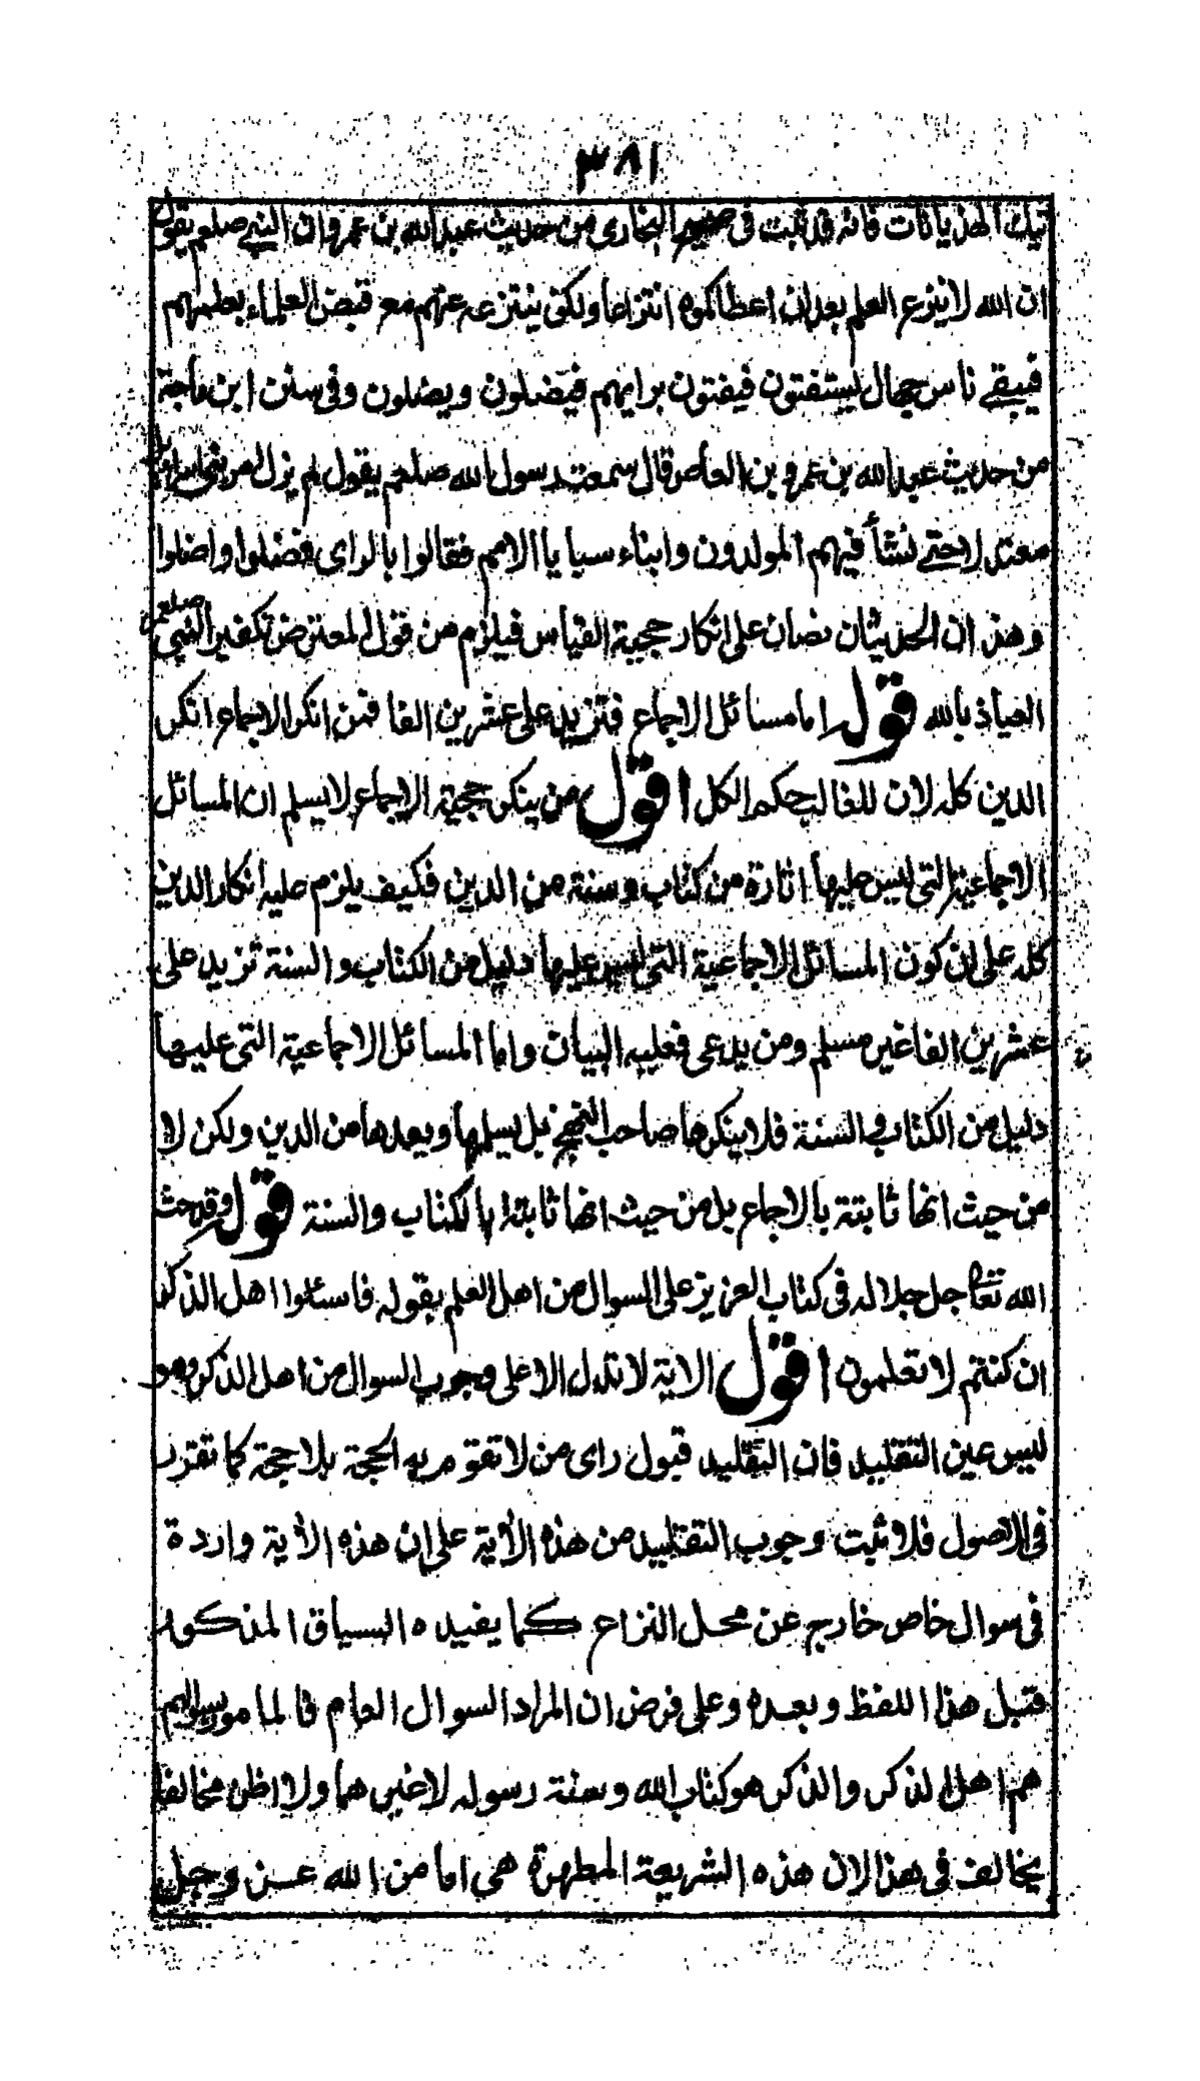 ٣٨١
تيك الهذيانات فانه قد ثبت فى صحيح البخارى من حديث عبدالله بن عمرو ان النبي صلعم يقول
ان الله لا ينزع العلم بعد ان اعطاكموه انتزاعا ولكن ينتزعه عنهم مع قبض العلماء بعلمهم
فيبقے ناس جهال يستفتون فيفتون برايهم فيضلون ويضلون وفى سنن ابن ماجة
من حديث عبدالله بن عمرو بن العاص قال سمعت رسول الله صلعم يقول لم يزل امر بنى اسرائيل
معتدلا حتے نشأ فيهم المولدون وابناء سبايا الامم فقالوا بالراى فضلوا واضلوا
وهذان الحديثان نصان على انكار حجية القياس فيلزم من قول المعترض تكفير النبي صلعم
العياذ بالله قوله اما مسائل الاجماع فتزيد على عشرين الفا فمن انكر الاجماع انكر
الدين كله لان للغالب حكم الكل اقول من ينكر حجية الاجماع لا يسلم ان المسائل
الاجماعية التى ليس عليها اثارة من كتاب وسنة من الدين فكيف يلزم عليه انكار الدين
كله على ان كون المسائل الاجماعية التى ليس عليها دليل من الكتاب والسنة تزيد على
عشرين الفا غير مسلم ومن يدعى فعليه البيان واما المسائل الاجماعية التى عليها
دليل من الكتاب والسنة فلا ينكرها صاحب النهج بل يسلمها ويعدها من الدين ولكن لا
من حيث انها ثابتة بالاجماع بل من حيث انها ثابتة بالكتاب والسنة قوله وقد حث
الله تعالى جل جلاله فى كتاب العزيز على السوال من اهل العلم بقوله فاسئلوا اهل الذكر
ان كنتم لا تعلمون اقول الاية لا تدل الا على وجوب السوال من اهل الذكر وهو
ليس عين التقليد فان التقليد قبول راى من لا تقوم به الحجة بلا حجة كما تقرر
فى الاصول فلا ثبت وجوب التقليد من هذه الأية على ان هذه الأية واردة
فى سوال خاص خارج عن محل النزاع كما يفيده السياق المذكور
قبل هذا اللفظ وبعده وعلى فرض ان المراد السوال العام فالمامور بسوالهم
هم اهل الذكر والذكر هو كتاب الله وسنة رسوله لا غيرهما ولا اظن مخالفا
يخالف فى هذا لان هذه الشريعة المطهرة هى اما من الله عز وجل